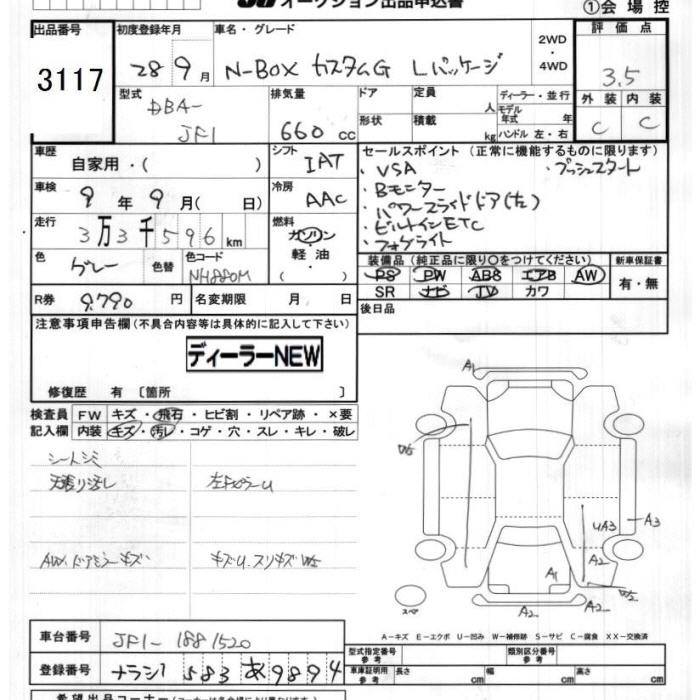 オークション出品申込書
①会場控
出品番号 初度登録年月 車名・グレード 2WD・4WD 評価点
3117
28 9月 N-BOX カスタムG Lパッケージ 3.5
型式 排気量 ドア 定員 人 ディーラー・並行 外装 内装
DBA-JF1 660 cc 形状 積載 kg モデル年式 年 ハンドル 左・右 C C
車歴 自家用・( ) シフト IAT セールスポイント (正常に機能するものに限ります)
・VSA ・プッシュスタート
・Bモニター
・パワースライドドア(左)
・ビルトインETC
・フォグライト
車検 9年 9月( 日) 冷房 AAC
走行 3万3千596km 燃料 ガソリン・軽油・( )
色 グレー 色替 色コード NH880M
装備品 (純正品に限り○をつけてください) 新車保証書
PS PW ABS エアB AW 有・無
SR ナビ TV カワ
R券 9,790 円 名変期限 月 日 後日品
注意事項申告欄 (不具合内容等は具体的に記入して下さい)
ディーラーNEW
修復歴 有 〔箇所 〕
検査員 FW キズ・飛石・ヒビ割・リペア跡・×要
記入欄 内装 キズ・汚レ・コゲ・穴・スレ・キレ・破レ
シートシミ
左ピラーU
AW、ドアミラーキズ
キズU、スリキズ W5
A1
W5
UA3 A3
A2
A1
W5
A2
スペア
A-キズ E-エクボ U-凹み W-補修跡 S-サビ C-腐食 XX-交換済
車台番号 JF1-1881520
型式指定番号 参考 類別区分番号 参考
登録番号 ナラ581 583 あ 9894
車庫証明用 参考 長さ cm 幅 cm 高さ cm
希望出品コーナー